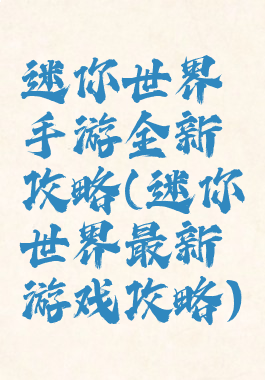 迷你世界
手游全新
攻略(迷你
世界最新
游戏攻略)